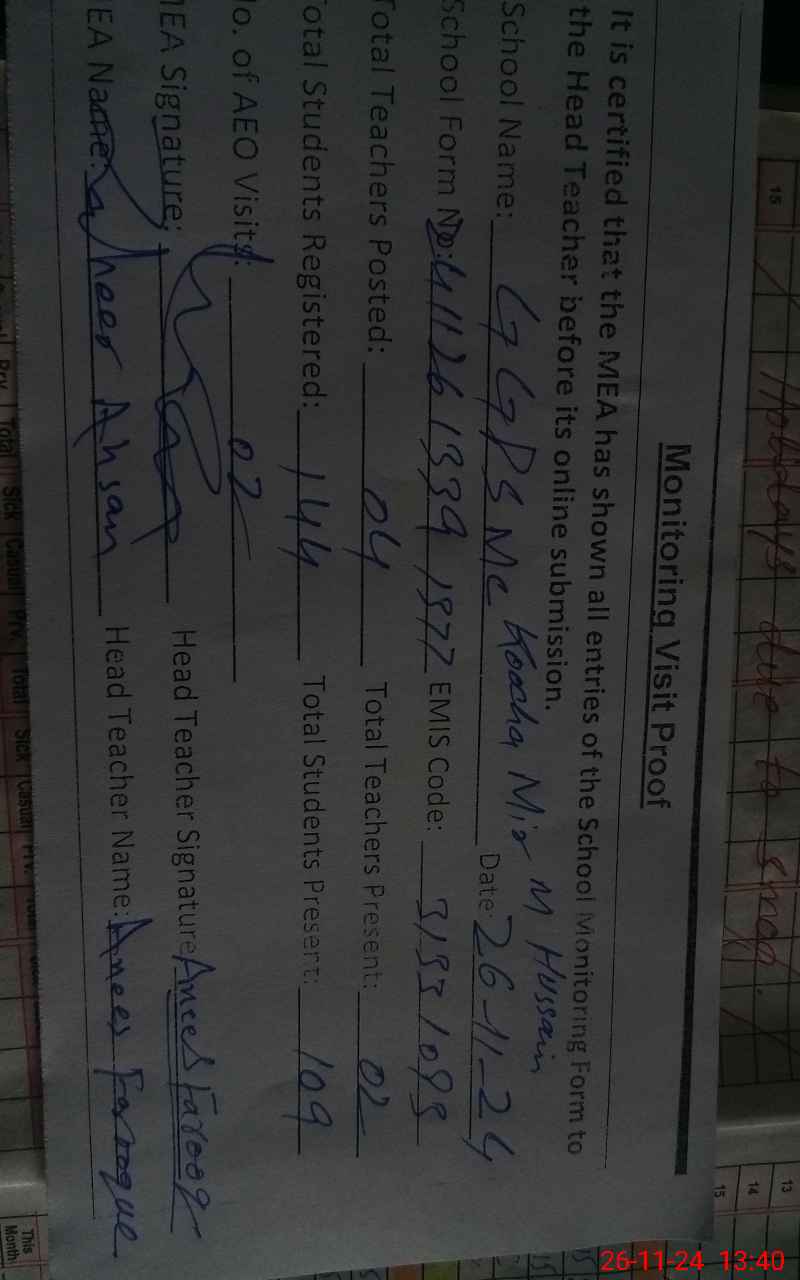 Holidays due to smog.
15
13
14
15
Monitoring Visit Proof
It is certified that the MEA has shown all entries of the School Monitoring Form to
the Head Teacher before its online submission.
School Name: GGPS MC Koocha Mir M Hussain Date: 26-11-24
School Form No: EMIS Code:
Total Teachers Posted: 04 Total Teachers Present: 02
Total Students Registered: 144 Total Students Present: 109
No. of AEO Visits: 02
MEA Signature: Head Teacher Signature Anees Farooq
MEA Name: Zaheer Ahsan Head Teacher Name: Anees Farooque
Prv. Total Sick Casual Prv. Total Sick Casual Prv.
This
Month
26-11-24 13:40